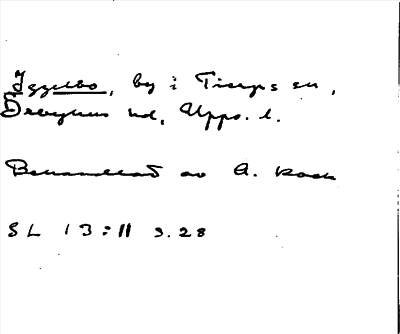 Iggelbo, by i Tierps sn,
Örbyhus hd, Upps. l.
Behandlat av A. Kock
SL 13:11 s. 28